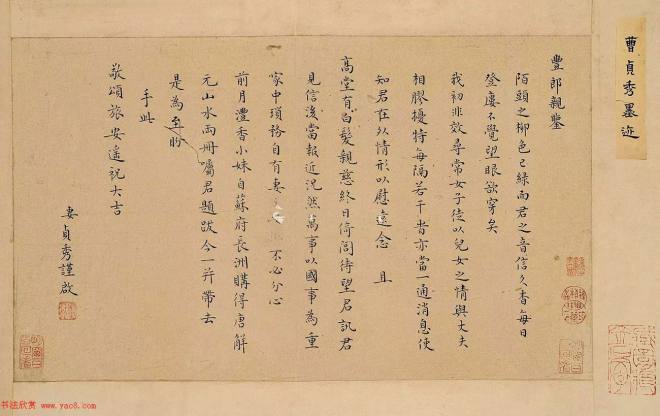 曹貞秀墨迹
豐郎親鑒
陌頭之柳色已綠而君之音信久杳每日
登樓不覺望眼欲穿矣
我初非效尋常女子徒以兒女之情與丈夫
相膠擾特每隔若干時亦當一通消息使
知君在外情形以慰遠念 且
高堂有白髮親慈終日倚閭待望君訊君
見信後當報近況然萬事以國事為重
家中瑣務自有妻 不必分心
前月澧香小妹自蘇府長洲購得唐解
元山水兩冊囑君題跋今一并帶去
是為至盼
手此
敬頌旅安遙祝大吉
妻貞秀謹啟
书法欣赏 www.yac8.com